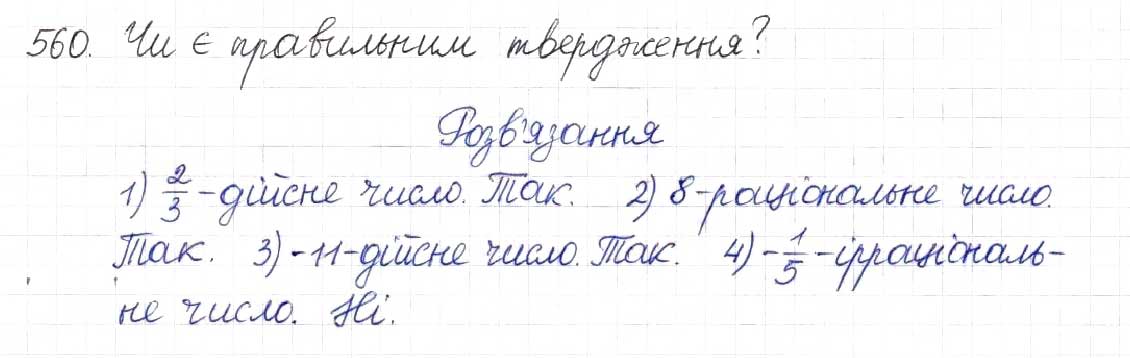 560. Чи є правильним твердження?
Розв'язання
1) 2/3 - дійсне число. Так. 2) 8 - раціональне число.
Так. 3) -11 - дійсне число. Так. 4) -1/5 - ірраціональ-
не число. Ні.